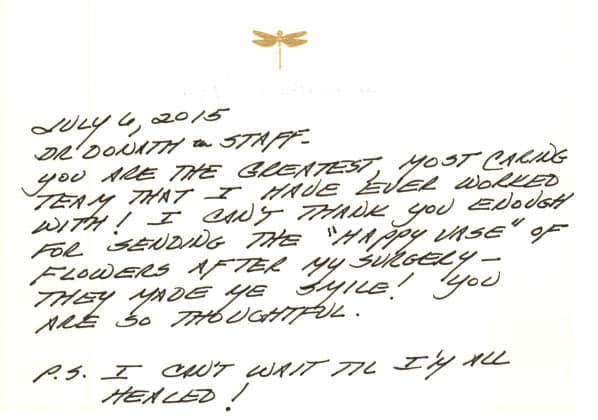 JULY 6, 2015
DR DONATH & STAFF-
YOU ARE THE GREATEST, MOST CARING
TEAM THAT I HAVE EVER WORKED
WITH! I CAN'T THANK YOU ENOUGH
FOR SENDING THE "HAPPY VASE" OF
FLOWERS AFTER MY SURGERY—
THEY MADE ME SMILE! YOU
ARE SO THOUGHTFUL.
P.S. I CAN'T WAIT TIL I'M ALL
HEALED!